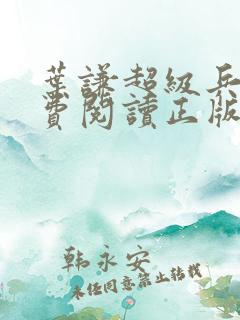 葉謙超級兵
費閱讀正版
韩永安
未经同意禁止转载